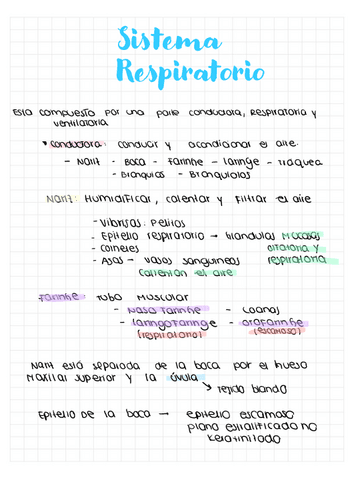 Sistema
Respiratorio
Esta compuesto por una parte conductora, respiratoria y
ventilatoria
conductora conducir y acondicionar el aire.
- Nariz - Boca - Farinhe - laringe - traquea
- Branquios - Branquiolos
Nariz: Humidificar, calentar y filtrar el aire
- Vibrisas: Pelitos
- Epitelio respiratorio → Glandulas mucosas
- Cornetes olfatoria y
- Asas → vasos sanguineos respiratoria
calientan el aire
Farinhe tubo muscular
- Naso farinhe - Coanas
- laringofaringe - orofarinhe
(respiratorio) (escamoso)
Nariz está separada de la boca por el hueso
Maxilar superior y la úvula
→ tejido blando
Epitelio de la boca → epitelio escamoso
plano estratificado no
keratinizado